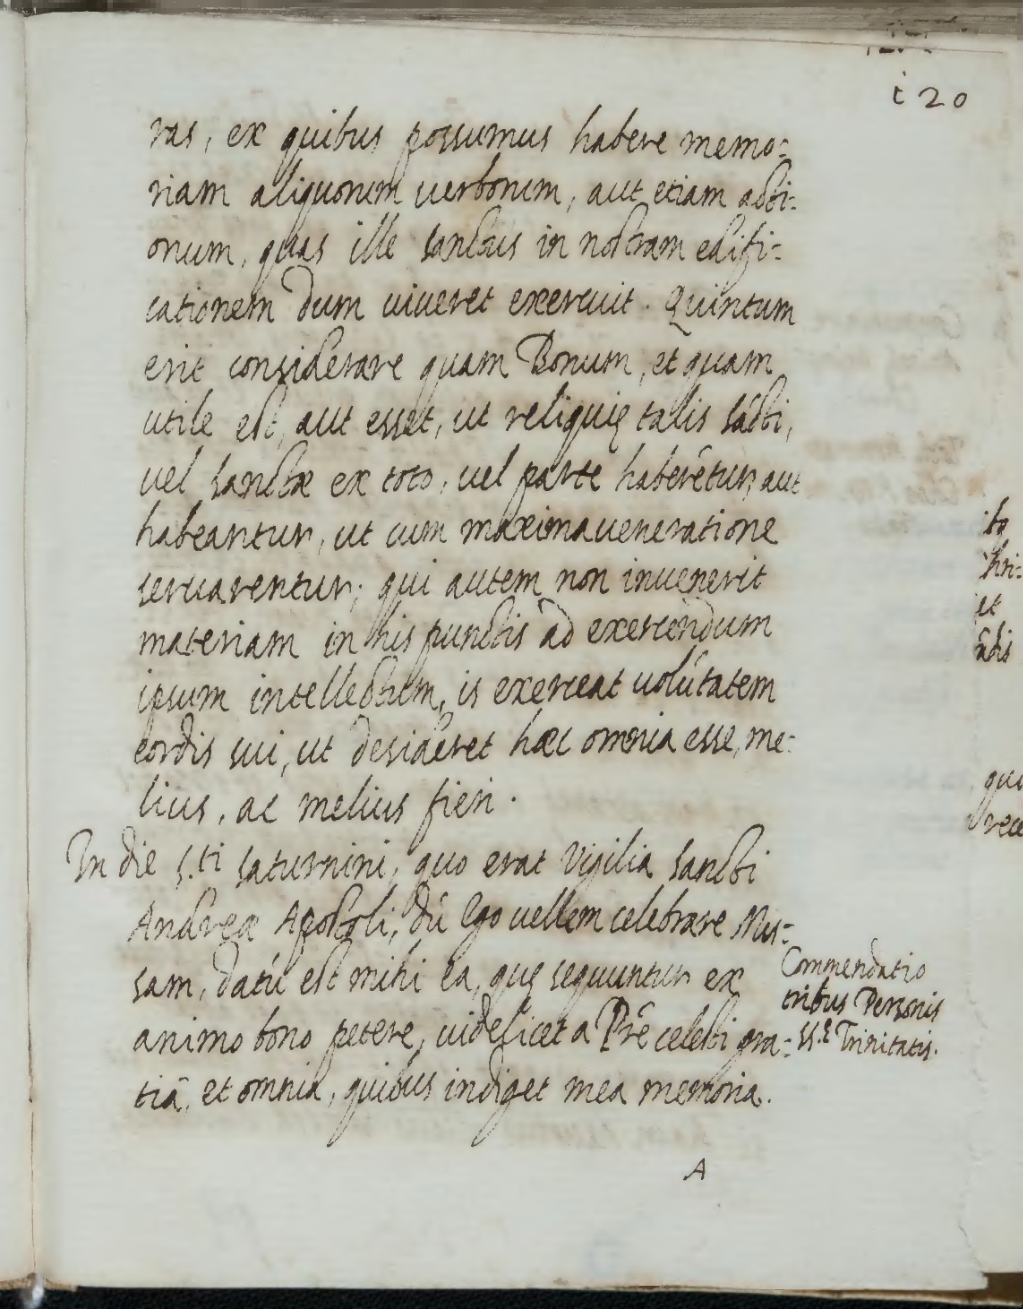 120
ras, ex quibus possumus habere memo:
riam aliquorum verborum, aut etiam acti:
onum, quas ille sanctus in nostram edifi:
cationem dum viveret exercuit. Quintum
erit considerare quam Bonum, et quam
utile est, aut esset, ut reliquię talis sācti,
vel sanctæ ex toto, vel parte haberētur, aut
habeantur, ut cum maxima veneratione
servarentur; qui autem non invenerit
materiam in his punctis ad exercendum
ipsum intellectum, is exerceat volūtatem
cordis sui, ut desideret hæc omnia esse, me:
lius, ac melius fieri.
In die s.ti saturnini, quo erat Vigilia sancti
Andreæ Apostoli, dū Ego vellem celebrare Mis:
sam, datū est mihi ea, quę sequuntur ex
animo bono petere, videlicet a Prē celesti gra:
tiā, et omnia, quibus indiget mea memoria.
Commendatio
tribus Personis
SS.ę Trinitatis.
A